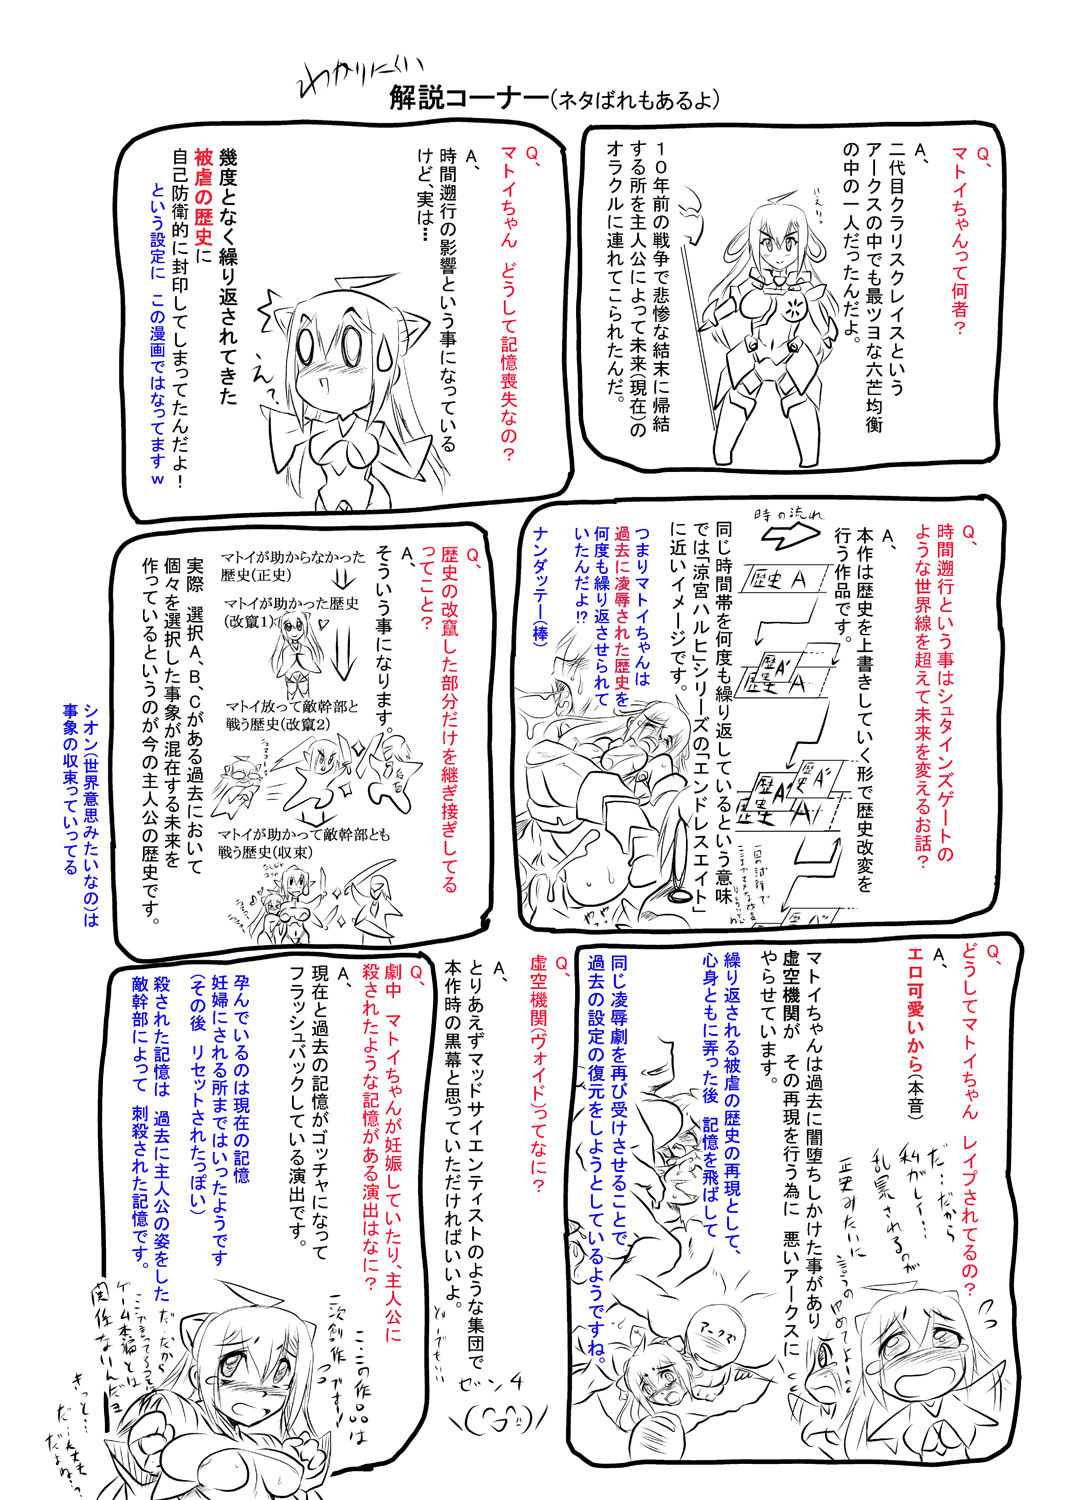 わかりにくい
解説コーナー(ネタばれもあるよ)
Q、
マトイちゃんって何者?
A、
二代目クラリスクレイスという
アークスの中でも最ツヨな六芒均衡
の中の一人だったんだよ。
10年前の戦争で悲惨な結末に帰結
する所を主人公によって未来(現在)の
オラクルに連れてこられたんだ。
Q、
マトイちゃん どうして記憶喪失なの?
A、
時間遡行の影響という事になっている
けど、実は…
幾度となく繰り返されてきた
被虐の歴史に
自己防衛的に封印してしまってたんだよ!
という設定に この漫画ではなってますｗ
え?
Q、
時間遡行という事はシュタインズゲートの
ような世界線を超えて未来を変えるお話?
A、
本作は歴史を上書きしていく形で歴史改変を
行う作品です。
時の流れ
歴史 A
歴史 A'
歴史 A
歴史 A"
歴史 A'
歴史 A
同じ時間帯を何度も繰り返しているという意味
では「涼宮ハルヒシリーズの「エンドレスエイト」
に近いイメージです。
つまりマトイちゃんは
過去に凌辱された歴史を
何度も繰り返させられて
いたんだよ!?
ナンダッテー(棒)
Q、
歴史の改竄した部分だけを継ぎ接ぎしてる
ってこと?
A、
そういう事になります。
マトイが助からなかった
歴史(正史)
マトイが助かった歴史
(改竄1)
マトイ放って敵幹部と
戦う歴史(改竄2)
マトイが助かって敵幹部とも
戦う歴史(収束)
実際 選択A、B、Cがある過去において
個々を選択した事象が混在する未来を
作っているというのが今の主人公の歴史です。
シオン(世界意思みたいなの)は
事象の収束っていってる
Q、
どうしてマトイちゃん レイプされてるの?
A、
エロ可愛いから(本音)
マトイちゃんは過去に闇堕ちしかけた事があり
虚空機関が その再現を行う為に 悪いアークスに
やらせています。
繰り返される被虐の歴史の再現として、
心身ともに弄った後 記憶を飛ばして
同じ凌辱劇を再び受けさせることで、
過去の設定の復元をしようとしているようですね。
だ…だから
私がレイ…
乱暴されるのが
正史みたいに
言うのやめてよー
アークス
Q、
虚空機関(ヴォイド)ってなに?
A、
とりあえずマッドサイエンティストのような集団で
本作時の黒幕と思っていただければいいよ。
Q、
劇中 マトイちゃんが妊娠していたり、主人公に
殺されたような記憶がある演出はなに?
A、
現在と過去の記憶がゴッチャになって
フラッシュバックしている演出です。
孕んでいるのは現在の記憶
妊婦にされる所まではいったようです
(その後 リセットされたっぽい)
殺された記憶は 過去に主人公の姿をした
敵幹部によって 刺殺された記憶です。
ここの作品は
二次創作です!
だ…だから
ここで言ってることは
ゲーム本編とは
関係ないんだよ
きっと…
だ…大丈夫
だよね…?